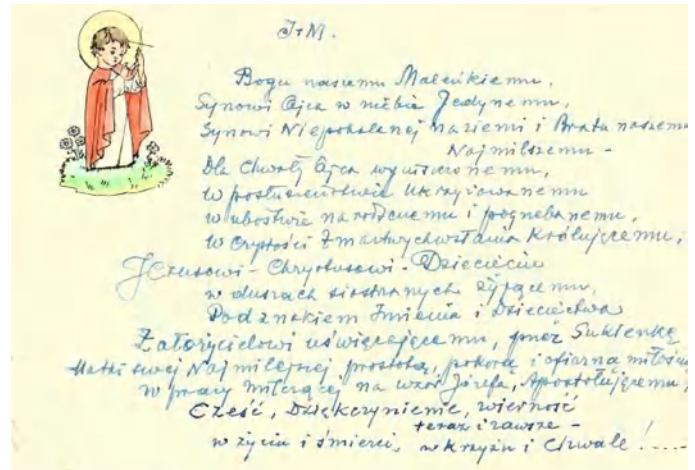 J+M.
Bogu naszemu Maleńkiemu,
Synowi Ojca w niebie Jedynemu,
Synowi Niepokalanej na ziemi i Bratu naszemu
Najmilszemu -
Dla Chwały Ojca wyniszczonemu,
w posłuszeństwie Ukrzyżowanemu
w ubóstwie narodzonemu i pogrzebanemu,
w Czystości Zmartwychwstania Królującemu,
JEzusowi - Chrystusowi - Dziecięciu
w duszach siostrzanych żyjącemu,
Pod znakiem Imienia i Dziecięctwa
Założycielowi uświęcającemu, przez Sukienkę
Matki swej Najmilejszej prostotą, pokorą i ofiarną miłością
w pracy milczącej na wzór Józefa, Apostołującemu,
Cześć, Dziękczynienie, wierność
teraz i zawsze -
w życiu i śmierci, w krzyżu i Chwale!....